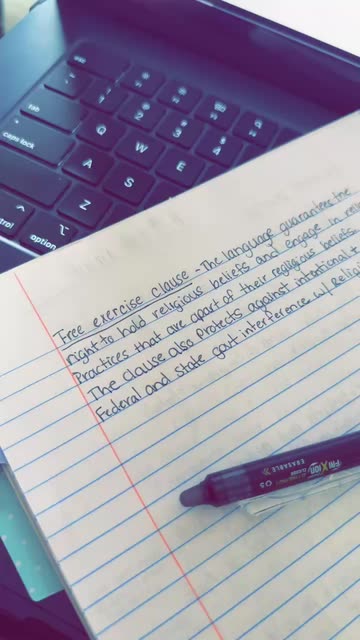 esc
tab
Q
W
E
2
3
4
caps lock
A
S
Z
option
Free exercise clause - The language guarantees the
right to hold religious beliefs and engage in
Practices that are apart of their regiligious beliefs.
The clause also protects against
Federal and state gov't interference w/
FriXion
CLICKER
ERASABLE
05